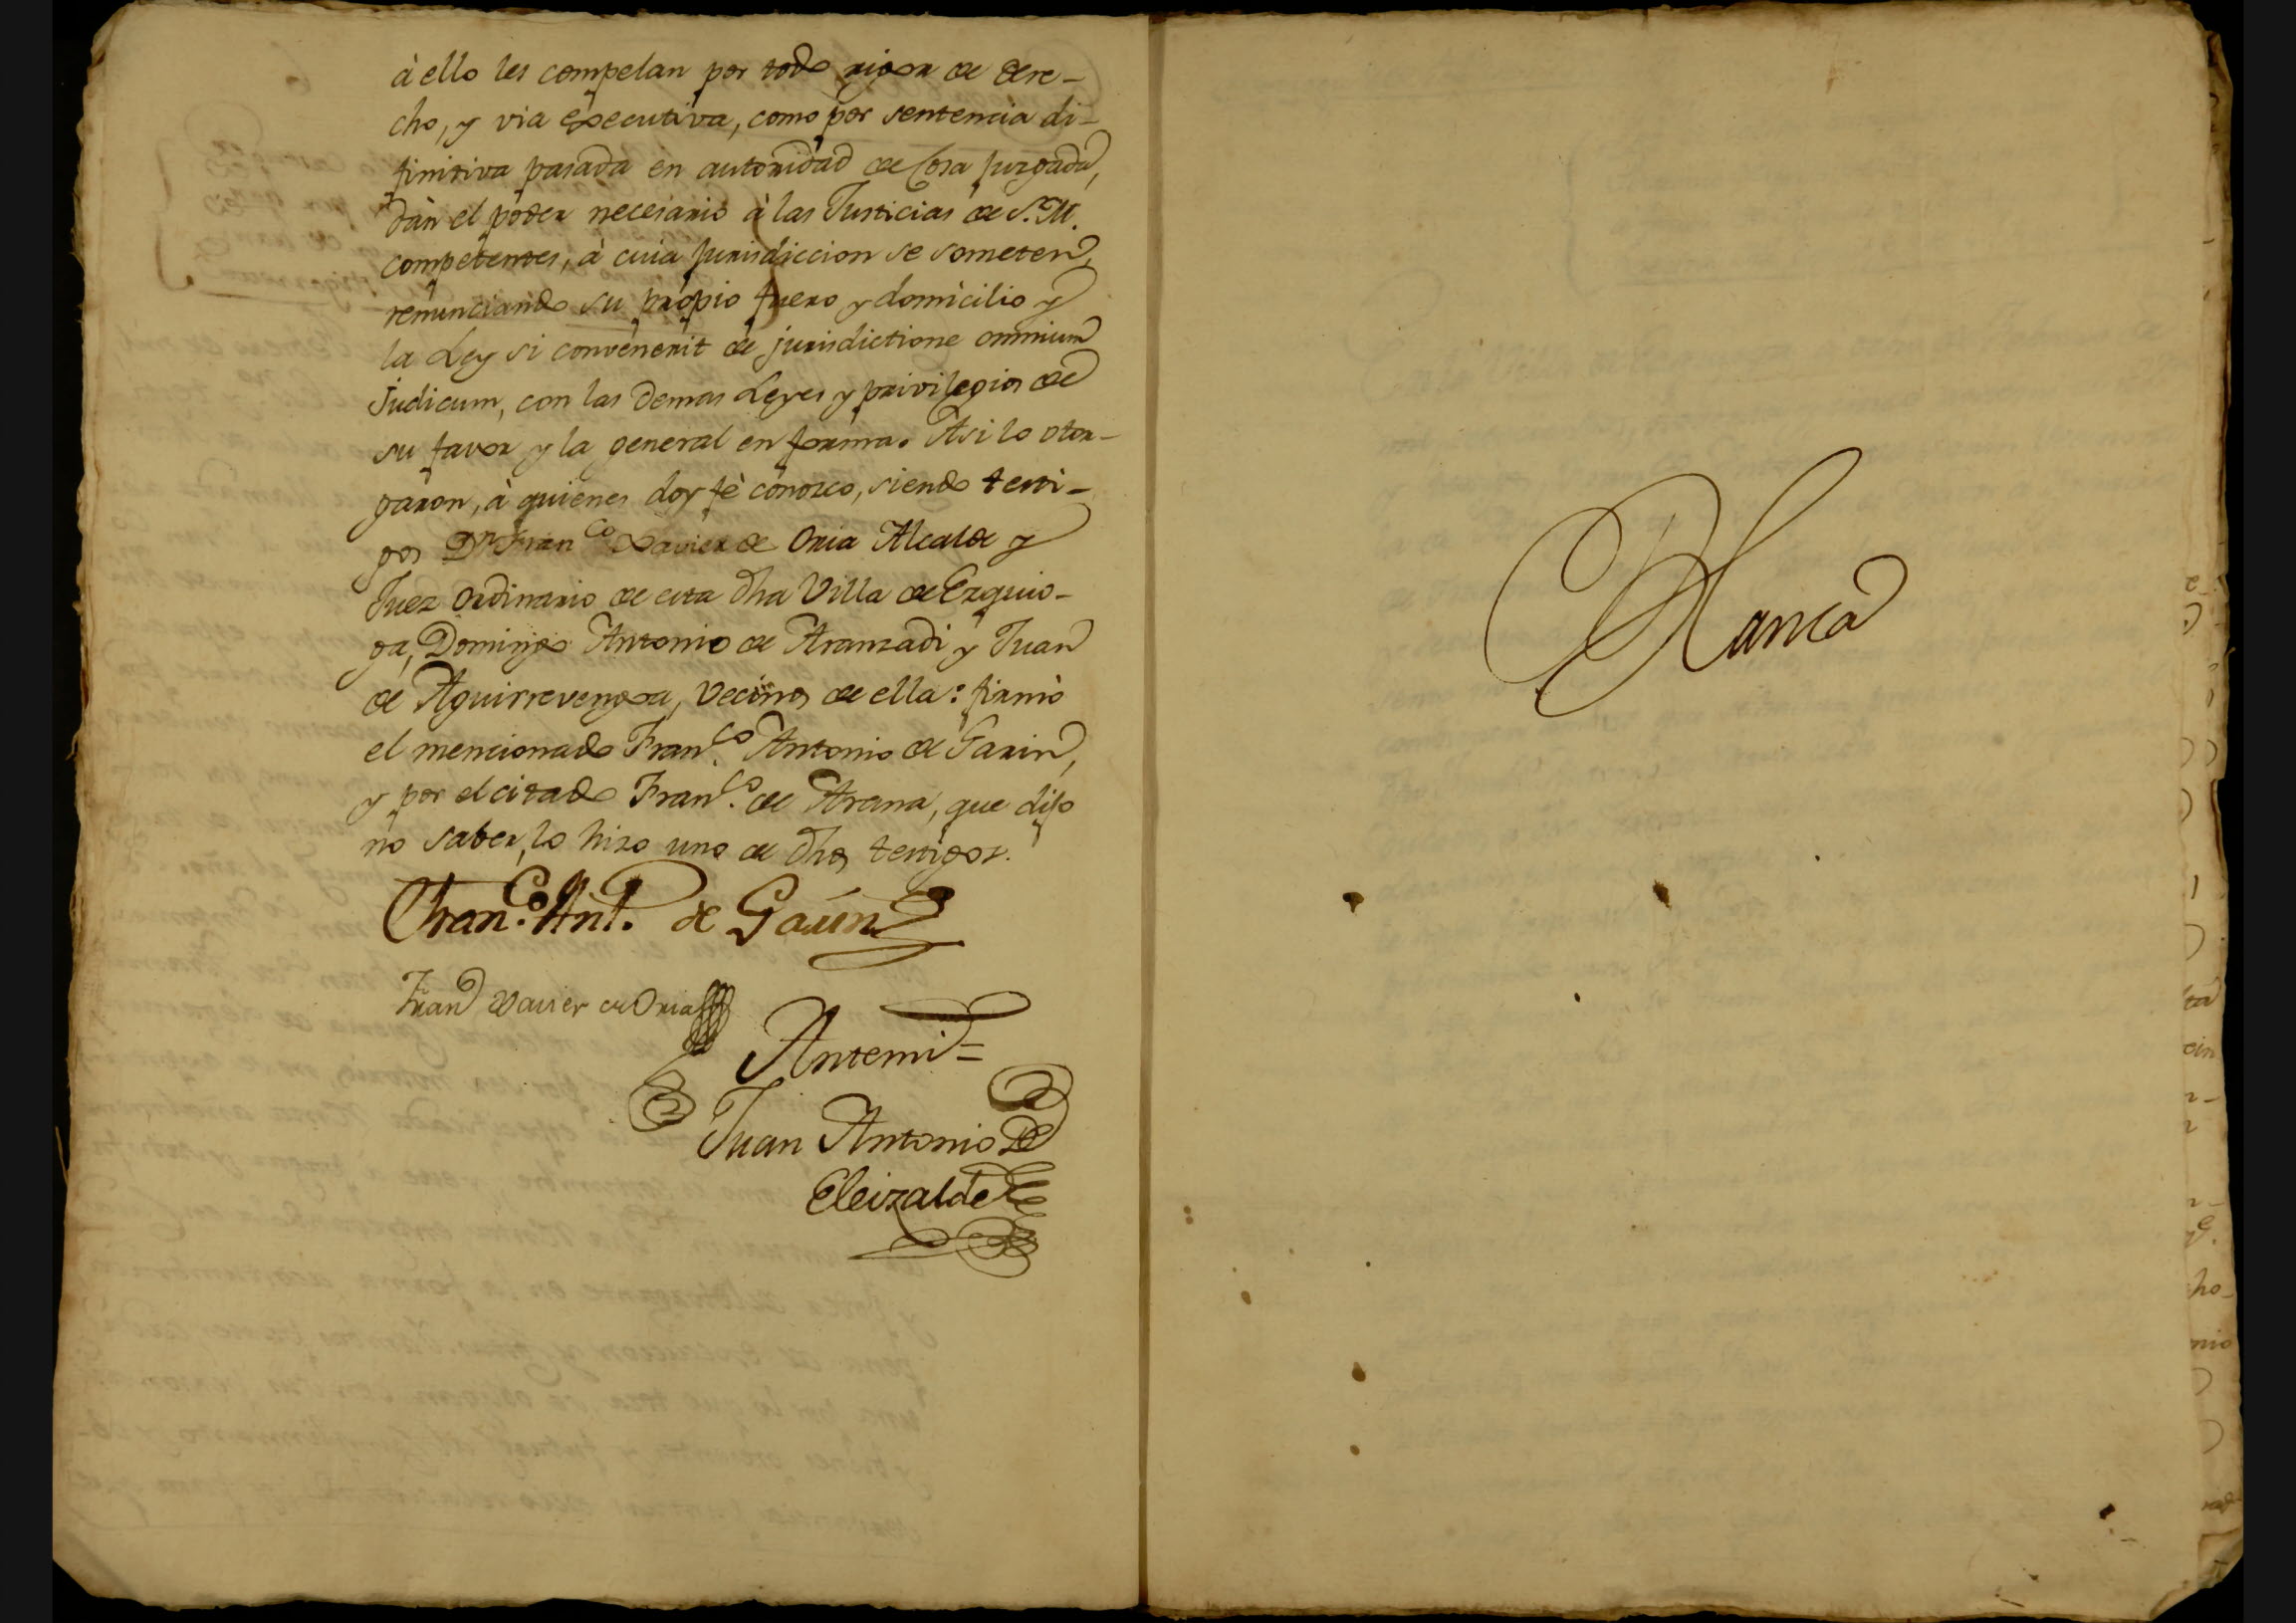 à ello les compelan por todo rigor de dere-
cho, y via executiva, como por sentencia di-
finitiva pasada en autoridad de Cosa juzgada,
dàn el poder necesario à las Justicias de S.M.
competentes, à cuia jurisdiccion se someten,
renunciando su propio fuero y domicilio y
la Ley si convenerit de jurisdictione omnium
judicum, con las demas Leyes y privilegios de
su favor y la general en forma. Asi lo otor-
garon, à quienes doy fè conozco, siendo testi-
gos Dn Franco Xavier de Oria Alcalde y
Juez ordinario de esta dha Villa de Ezquio-
ga, Domingo Antonio de Aranzadi y Juan
de Aguirrevengoa, vecinos de ella: firmò
el mencionado Franco Antonio de Garin,
y por el citado Franco de Arana, que dijo
no saber, lo hizo uno de dhos testigos.
Franco Anto de Garin
Fran Xavier de Oria
Antemi=
Juan Antonio de
Eleizalde
Blanca